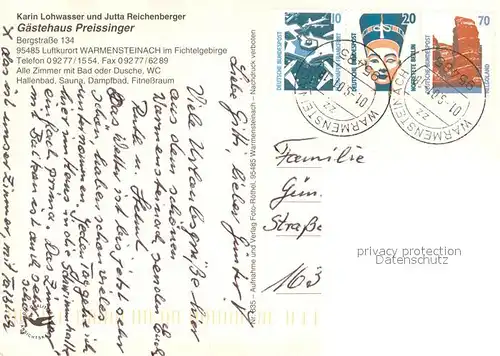 Karin Lohwasser und Jutta Reichenberger
Gästehaus Preissinger
Bergstraße 134
95485 Luftkurort WARMENSTEINACH im Fichtelgebirge
Telefon 09277/1554. Fax 09277/6289
Alle Zimmer mit Bad oder Dusche, WC
Hallenbad, Sauna, Dampfbad, Fitneßraum
10
DEUTSCHE BUNDESPOST
20
DEUTSCHE BUNDESPOST
NOFRETETE BERLIN
70
DEUTSCHE BUNDESPOST
HELGOLAND
WARMENSTEINACH
WARMENSTEINACH
Aufnahme und Verlag Foto-Röthel, 95485 Warmensteinach - Nachdruck verboten
Liebe Gitti, lieber Günter
Viele Urlaubsgrüße
aus dem schönen
Warmensteinach senden Euch
Das Wetter ist bis jetzt sehr
schön, haben schon vieles
unternommen, jeden Tag gehe ich
hier im Haus in die Schwimmhalle
einfach prima. Das Zimmer
mit Balkon ist auch sehr
schön
X das ist unser Zimmer, mit
Familie
Gün
Straße
163
privacy protection
Datenschutz